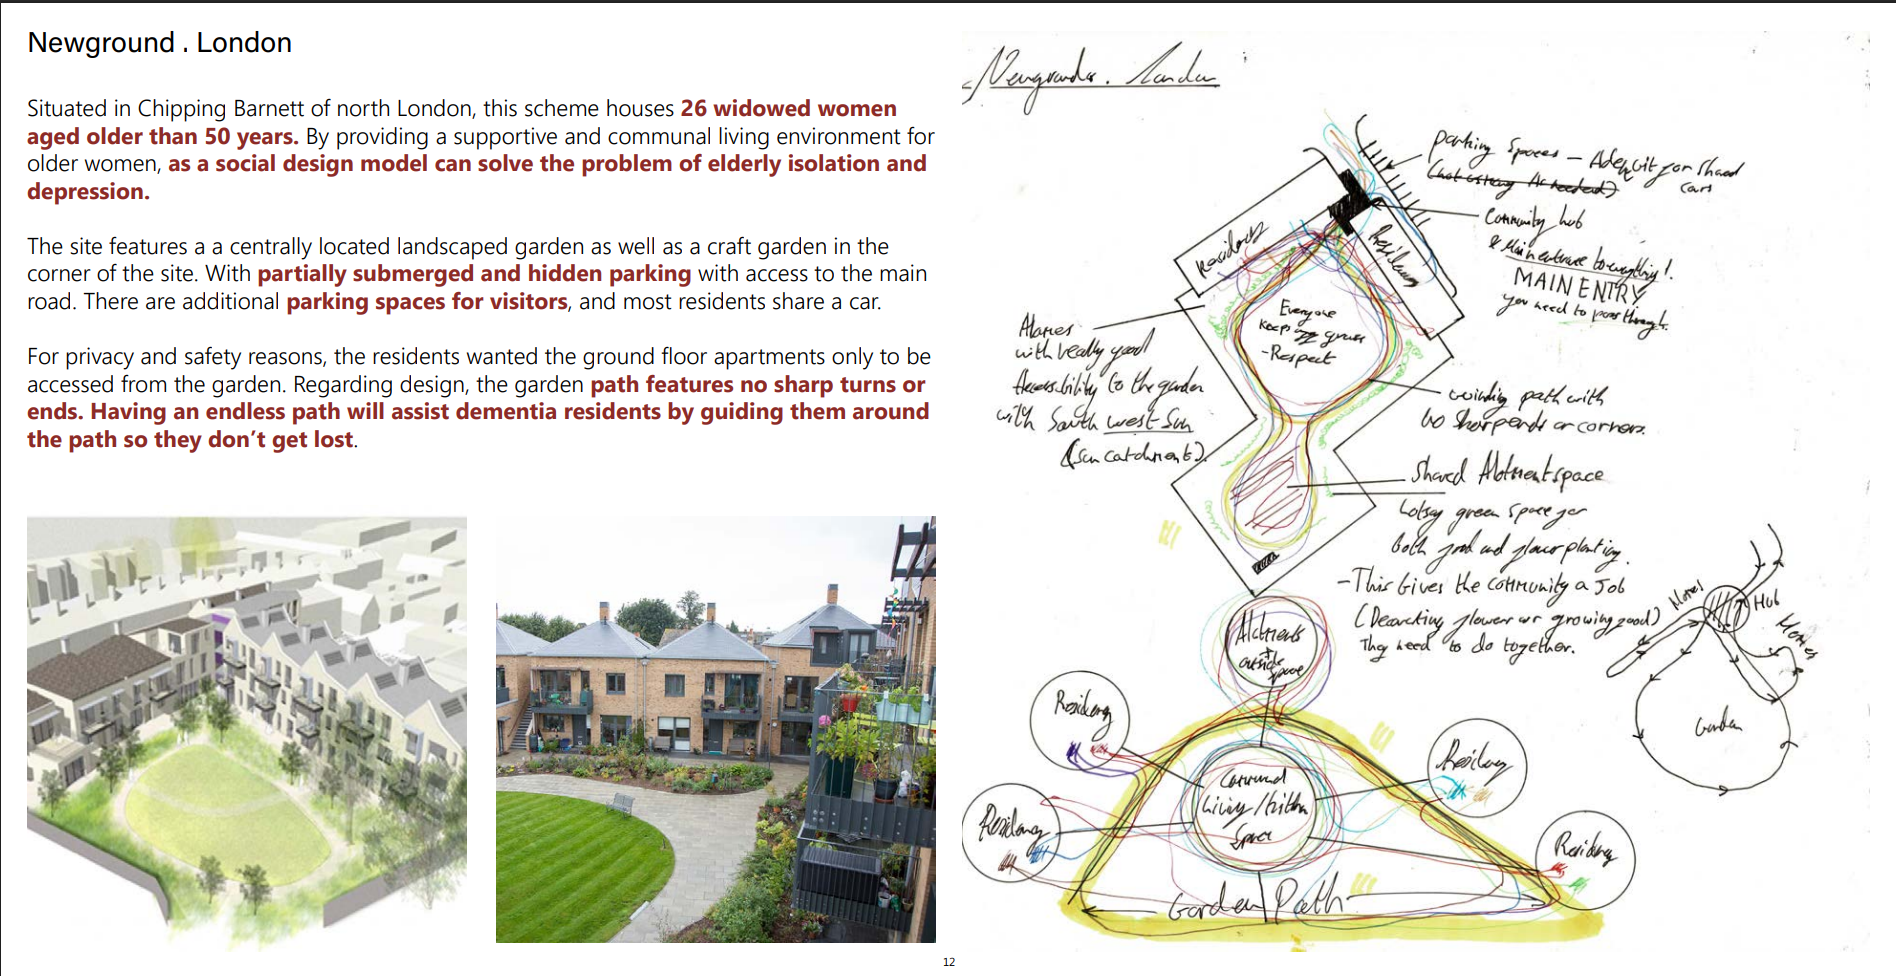 Newground . London
Situated in Chipping Barnett of north London, this scheme houses 26 widowed women
aged older than 50 years. By providing a supportive and communal living environment for
older women, as a social design model can solve the problem of elderly isolation and
depression.
The site features a a centrally located landscaped garden as well as a craft garden in the
corner of the site. With partially submerged and hidden parking with access to the main
road. There are additional parking spaces for visitors, and most residents share a car.
For privacy and safety reasons, the residents wanted the ground floor apartments only to be
accessed from the garden. Regarding design, the garden path features no sharp turns or
ends. Having an endless path will assist dementia residents by guiding them around
the path so they don't get lost.
London
parking spaces - for shared
cars
Community hub
& Main entrance to everything!
MAIN ENTRY
you need to pass through.
Residency
Residency
Everyone
keeps off grass
- Respect
with really good
Accessibility to the garden
with South west Sun
(sun catchment)
winding path with
no sharp ends or corners.
Shared Alotment space
green space for
both food and flower planting.
- This Gives the community a Job
flower or growing food)
They need to do together.
Alotments
+
outside
space
Residency
Residency
Residency
Residency
Communal
living/kitchen
Space
Garden Path
Homes
Hub
Homes
Garden
12